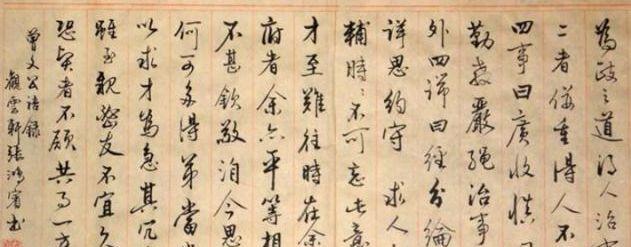 為政之道得人治
二者併重得人不
四事曰廣收慎
勤教嚴繩治事
外四端曰經分綸
詳思約守 求人
輔時々不可忘此意
才至難往時在余
府者余亦平等相
不甚欽敬洎今思
何可多得弟當
以求才為急其冗
雖至親密友不宜久
恐賢者不願共事一方
曾文公語錄
觀雲軒張鴻賓書